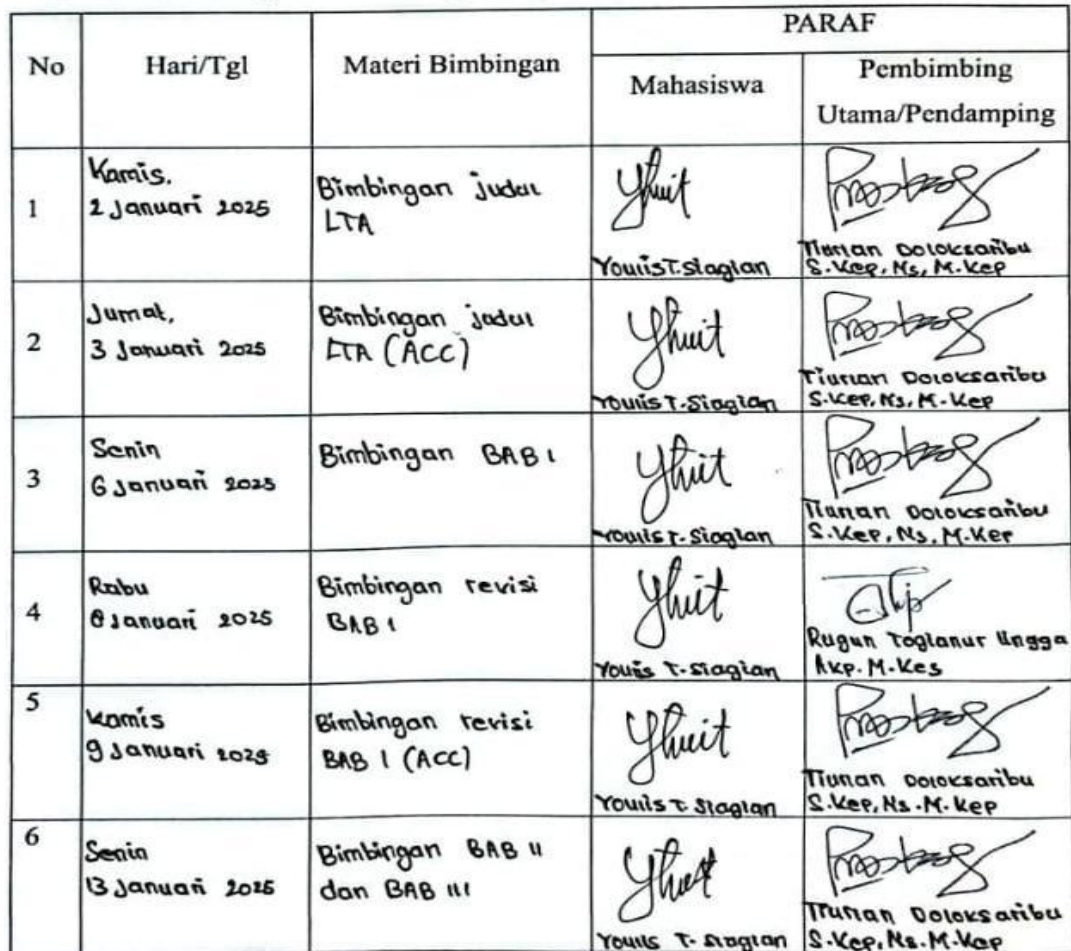 PARAF
No
Hari/Tgl
Materi Bimbingan
Mahasiswa
Pembimbing
Utama/Pendamping
1
Kamis.
2 Januari 2025
Bimbingan judul
LTA
Youlis T. Siagian
Tiurlan Doloksaribu
S.Kep, Ns, M.Kep
2
Jumat,
3 Januari 2025
Bimbingan judul
LTA (ACC)
Youlis T. Siagian
Tiurlan Doloksaribu
S.Kep, Ns, M.Kep
3
Senin
6 Januari 2025
Bimbingan BAB I
Youlis T. Siagian
Tiurlan Doloksaribu
S.Kep, Ns, M.Kep
4
Rabu
8 Januari 2025
Bimbingan revisi
BAB I
Youlis T. Siagian
Rugun Togianur Lingga
Akp. M.Kes
5
Kamis
9 Januari 2025
Bimbingan revisi
BAB I (ACC)
Youlis T. Siagian
Tiurlan Doloksaribu
S.Kep, Ns. M.Kep
6
Senin
13 Januari 2025
Bimbingan BAB II
dan BAB III
Youlis T. Siagian
Tiurlan Doloksaribu
S.Kep, Ns. M.Kep